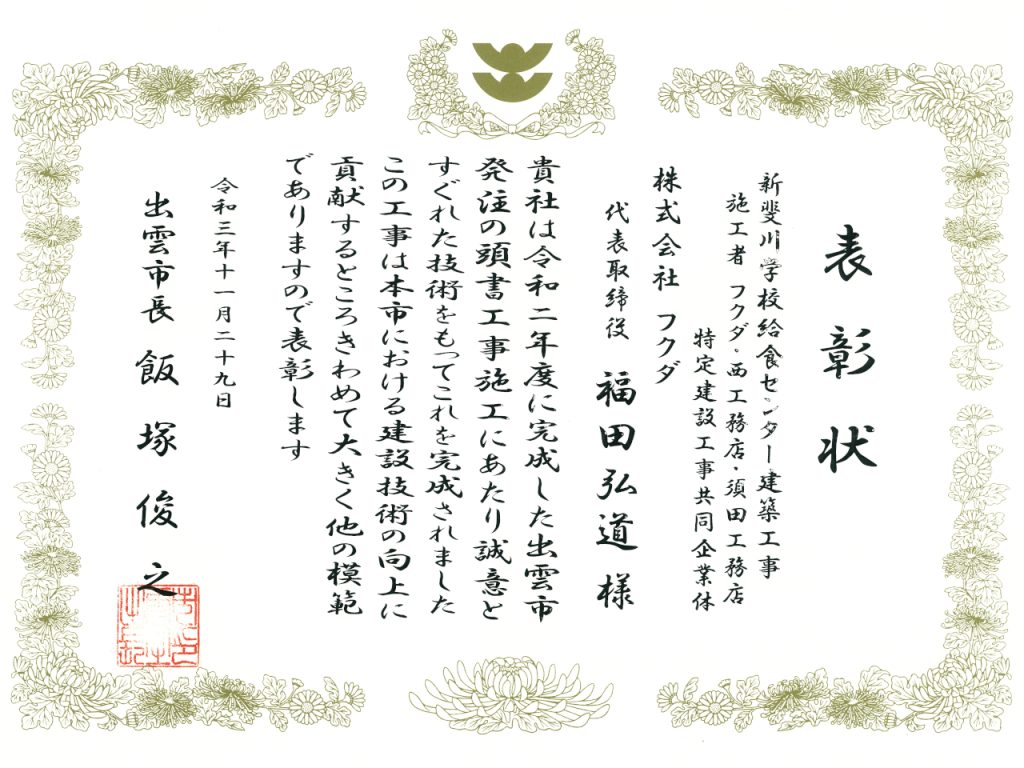 表彰状
新斐川学校給食センター建築工事
施工者 フクダ・西工務店・須田工務店
特定建設工事共同企業体
株式会社 フクダ
代表取締役 福田弘道 様
貴社は令和二年度に完成した出雲市
発注の頭書工事施工にあたり誠意と
すぐれた技術をもってこれを完成されました
この工事は本市における建設技術の向上に
貢献するところきわめて大きく他の模範
でありますので表彰します
令和三年十一月二十九日
出雲市長 飯塚俊之